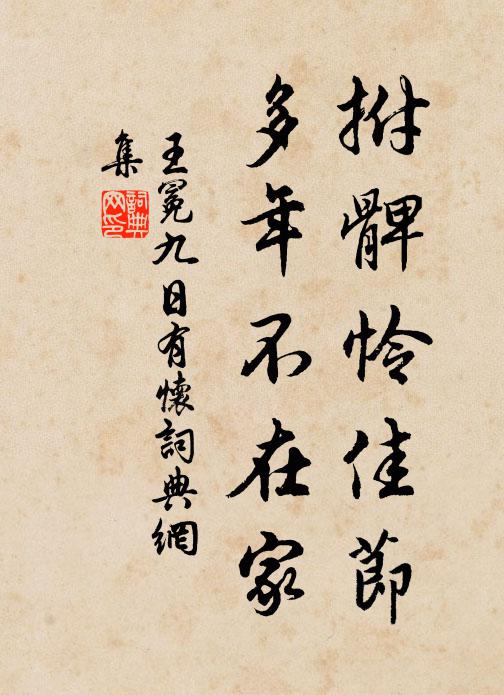 拊髀怜佳節
多年不在家
王冕九日有懷詞典網
集
詞典網印